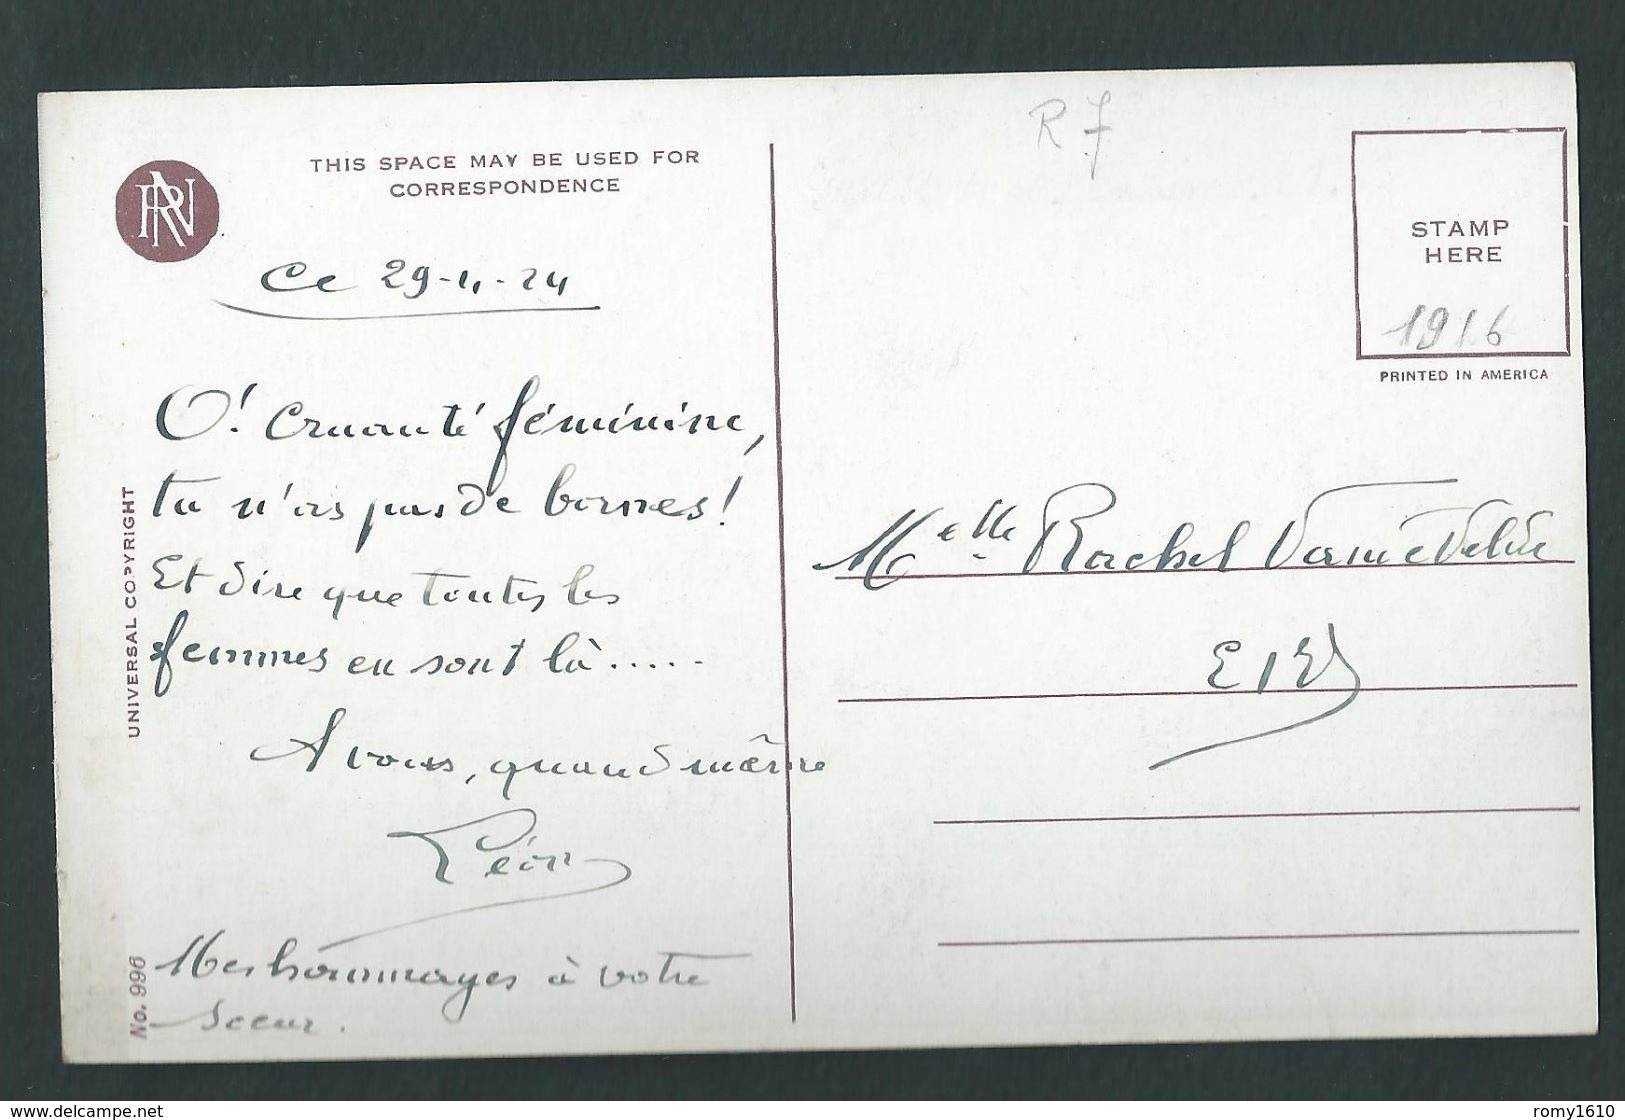 THIS SPACE MAY BE USED FOR
CORRESPONDENCE
RN
Ce 29-4-24
O! Cruauté féminine,
tu n'as pas de bornes!
Et dire que toutes les
femmes en sont là.....
A vous, quand même
Léon
Mes hommages à votre
soeur.
UNIVERSAL COPYRIGHT
No. 996
R 7
STAMP
HERE
1916
PRINTED IN AMERICA
Melle Rachel Vande Velde
E/V
www.delcampe.net
romy1610